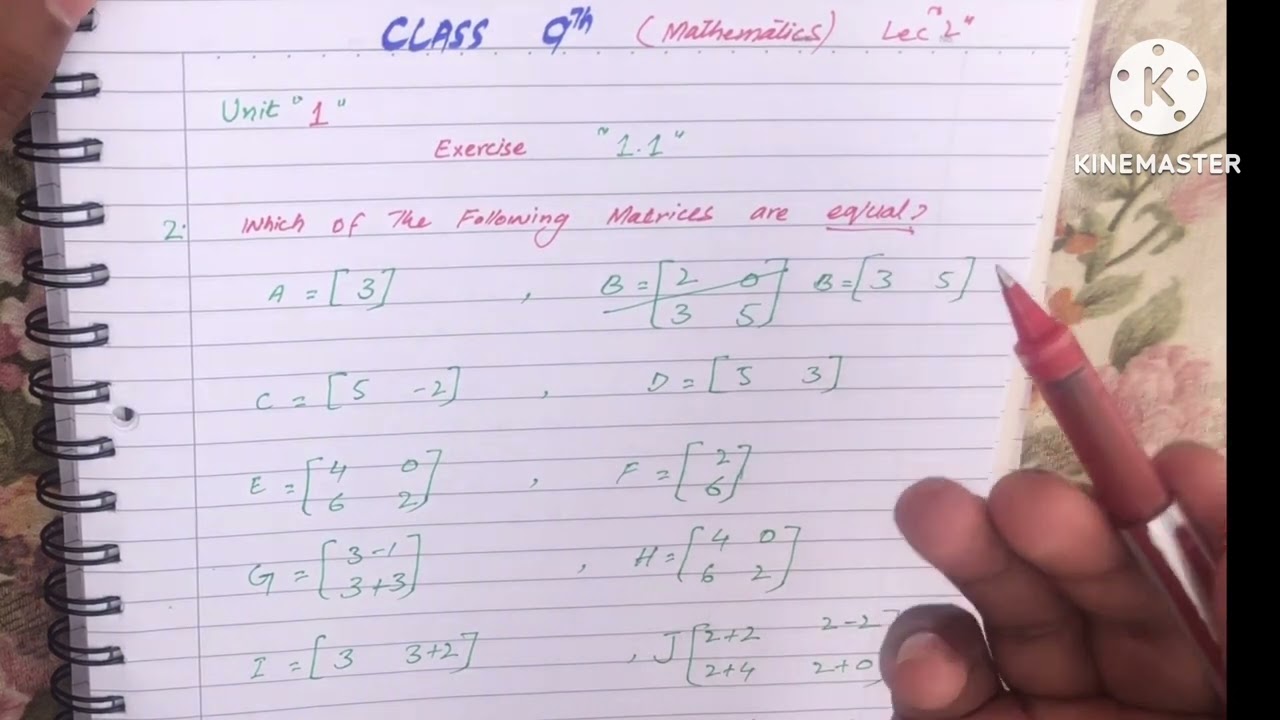 CLASS 9th (Mathematics) Lec "2"
K
KINEMASTER
Unit "1"
Exercise "1.1"
2. Which of The Following Matrices are equal?
A = [3] , B = [2 0 B = [3 5]
3 5]
C = [5 -2] , D = [5 3]
E = [4 0 , F = [2
6 2] 6]
G = [3-1 , H = [4 0
3+3] 6 2]
I = [3 3+2] , J [2+2 2-2
2+4 2+0]